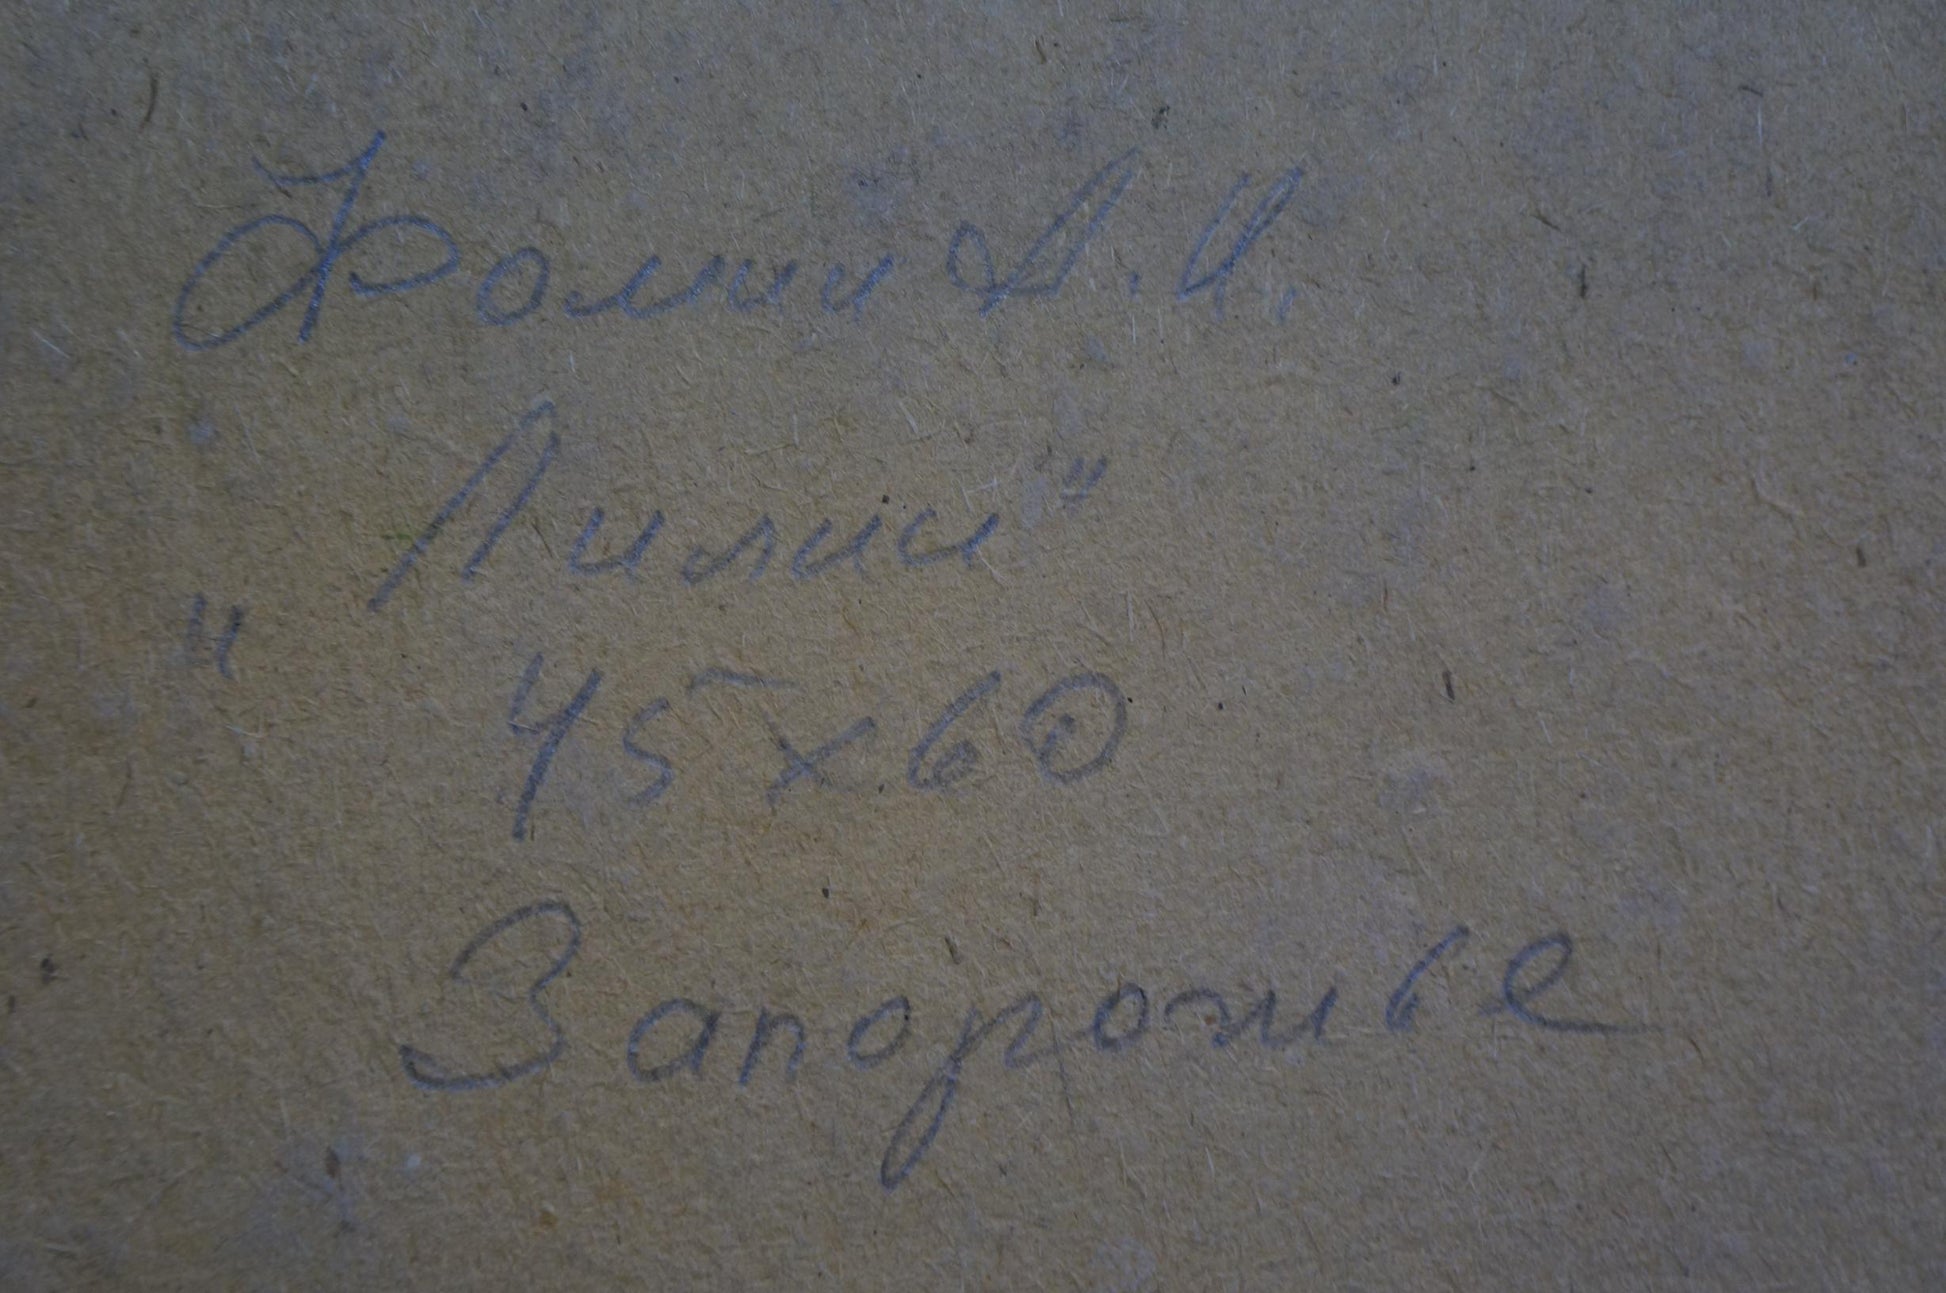 Фомин А.И.
"Лилии"
45х60
Запорожье